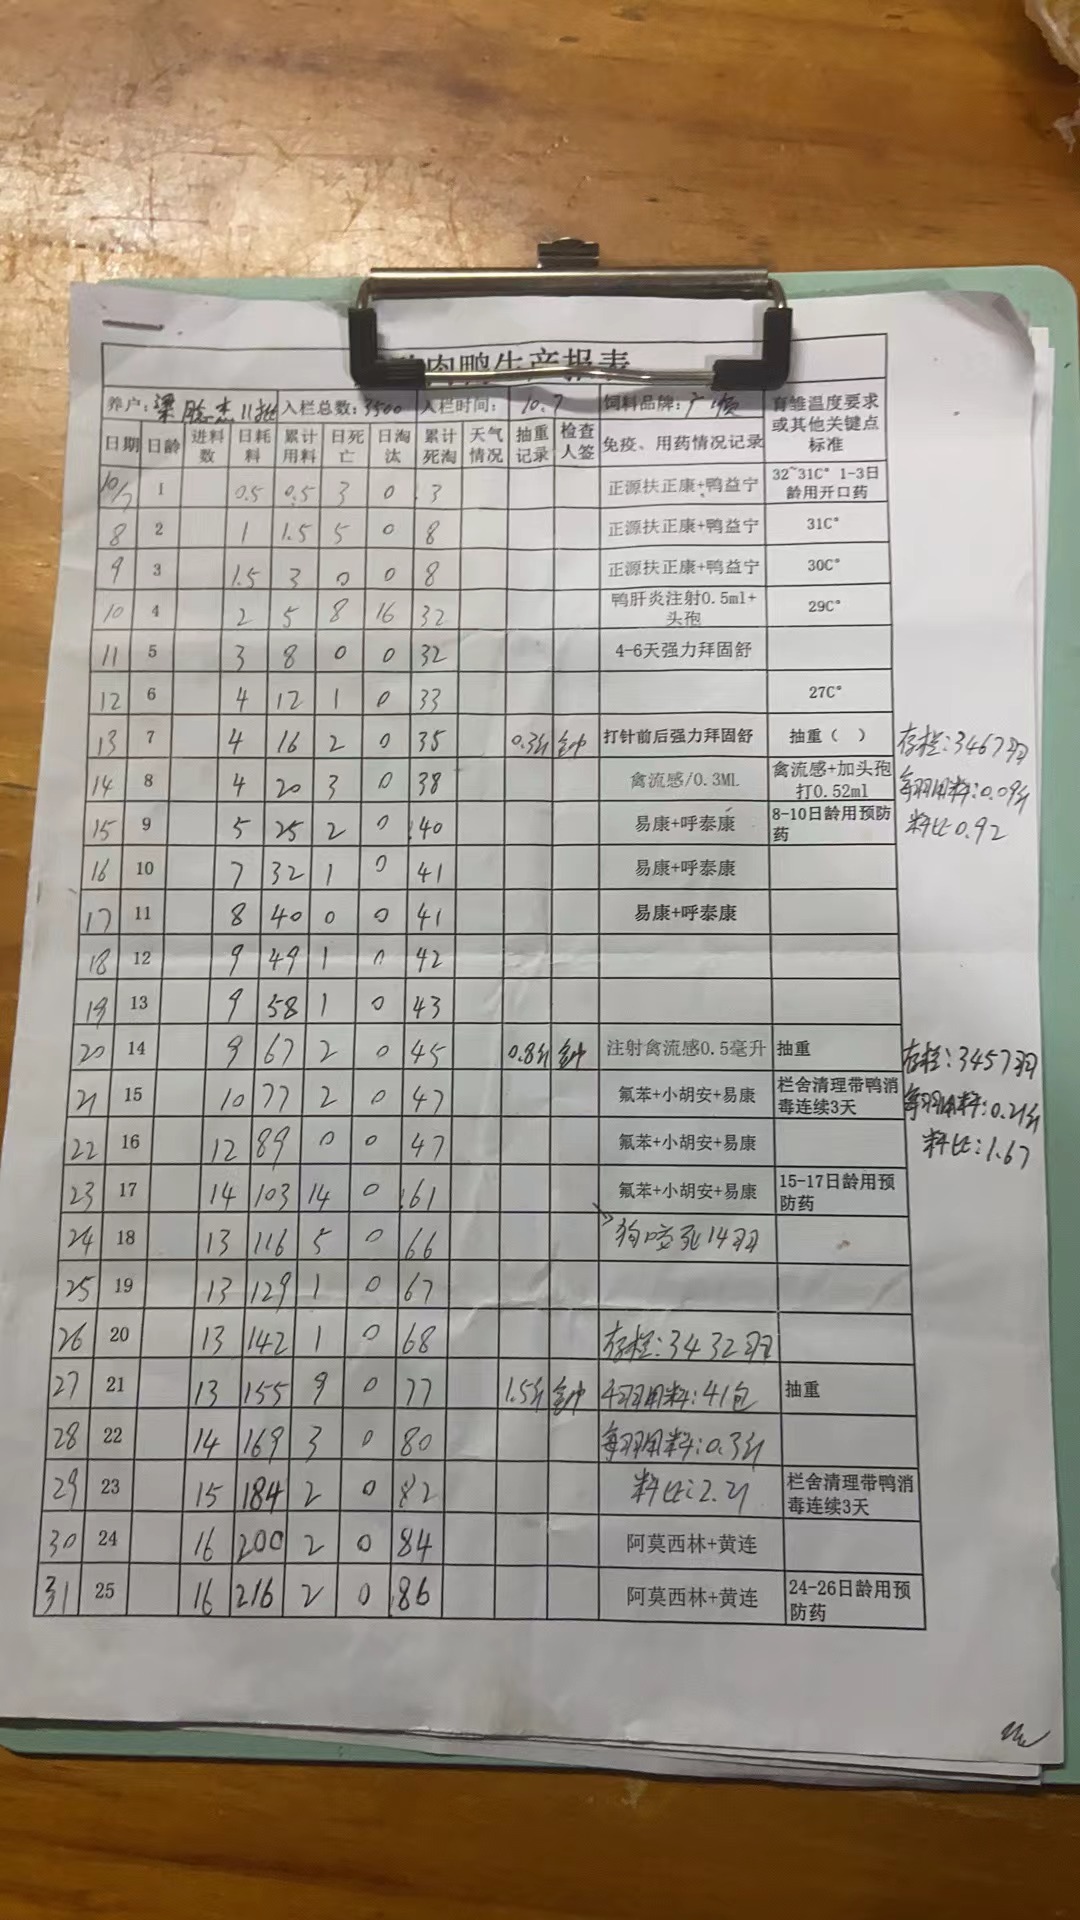 肉鸭生产报表
养户: 梁 杰11批 入栏总数: 3500 入栏时间: 10.7 饲料品牌: 广顺 育雏温度要求或其他关键点标准
日期 日龄 进料数 日耗料 累计用料 日死亡 日淘汰 累计死淘 天气情况 抽重记录 检查人签 免疫、用药情况记录
10/7 1 0.5 0.5 3 0 3 正源扶正康+鸭益宁 32~31C° 1-3日龄用开口药
8 2 1 1.5 5 0 8 正源扶正康+鸭益宁 31C°
9 3 1.5 3 0 0 8 正源扶正康+鸭益宁 30C°
10 4 2 5 8 16 32 鸭肝炎注射0.5ml+头孢 29C°
11 5 3 8 0 0 32 4-6天强力拜固舒
12 6 4 12 1 0 33 27C°
13 7 4 16 2 0 35 0.3斤 打针前后强力拜固舒 抽重（ ） 存栏:3467羽
14 8 4 20 3 0 38 禽流感/0.3ML 禽流感+加头孢打0.52ml 每羽用料:0.09斤
15 9 5 25 2 0 40 易康+呼泰康 8-10日龄用预防药 料比0.92
16 10 7 32 1 0 41 易康+呼泰康
17 11 8 40 0 0 41 易康+呼泰康
18 12 9 49 1 0 42
19 13 9 58 1 0 43
20 14 9 67 2 0 45 0.8斤 注射禽流感0.5毫升 抽重 存栏:3457羽
21 15 10 77 2 0 47 氟苯+小胡安+易康 栏舍清理带鸭消毒连续3天 每羽用料:0.21斤
22 16 12 89 0 0 47 氟苯+小胡安+易康 料比:1.67
23 17 14 103 14 0 61 氟苯+小胡安+易康 15-17日龄用预防药
24 18 13 116 5 0 66 狗咬死14羽
25 19 13 129 1 0 67
26 20 13 142 1 0 68 存栏:3432羽
27 21 13 155 9 0 77 1.5斤 千羽用料:41包 抽重
28 22 14 169 3 0 80 每羽用料:0.3斤
29 23 15 184 2 0 82 料比:2.21 栏舍清理带鸭消毒连续3天
30 24 16 200 2 0 84 阿莫西林+黄连
31 25 16 216 2 0 86 阿莫西林+黄连 24-26日龄用预防药